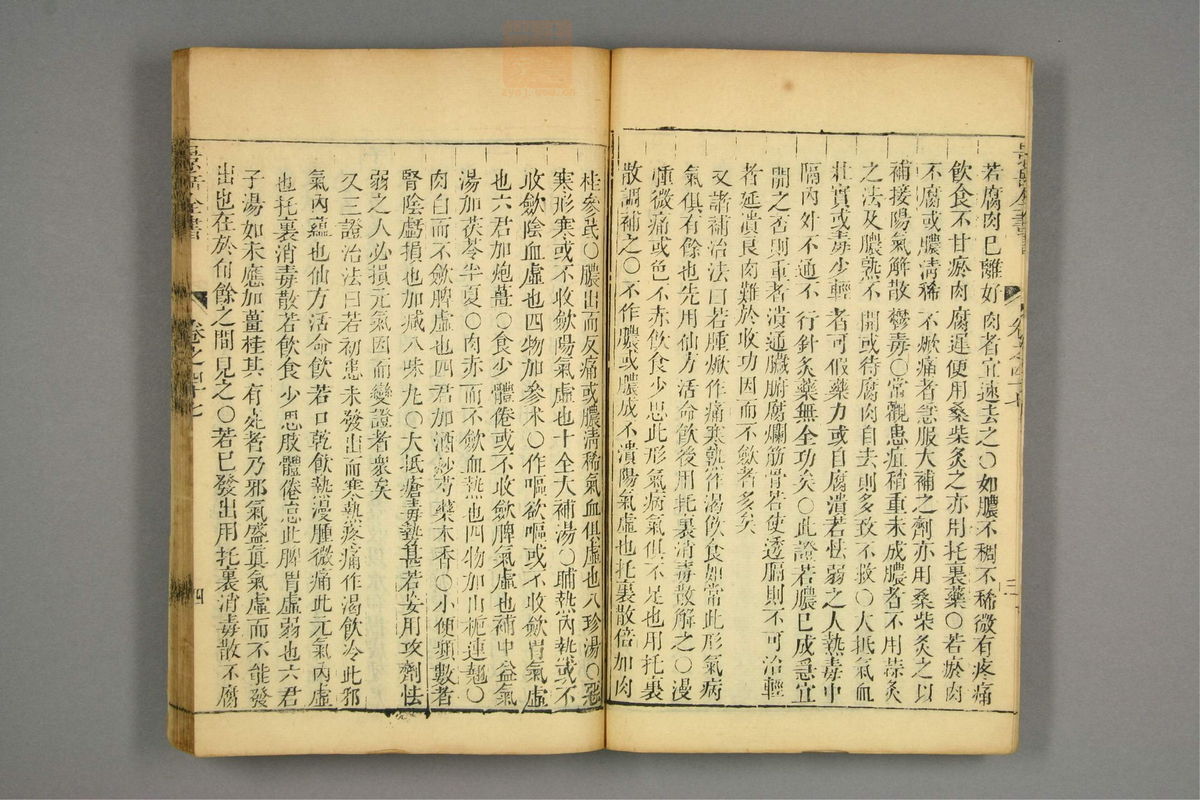 若腐肉已離好肉者宜速去之〇如膿不稠不稀微有疼痛
飲食不甘瘀肉腐遲便用桑柴灸之亦用托裏藥〇若瘀肉
不腐或膿清稀不焮痛者急服大補之劑亦用桑柴灸之以
補接陽氣解散鬱毒〇常觀患疽稍重未成膿者不用蒜灸
之法及膿熟不開或待腐肉自去則多致不救〇大抵氣血
壯實或毒少輕者可假藥力或自腐潰若怯弱之人熱毒中
隔內外不通不行針灸藥無全功矣〇此證若膿已成急宜
開之否則重者潰通臟腑腐爛筋骨若使透膈則不可治輕
者延潰良肉難於收功因而不斂者多矣
又諸補治法曰若腫焮作痛寒熱作渴飲食如常此形氣病
氣俱有餘也先用仙方活命飲後用托裏消毒散解之〇漫
腫微痛或色不赤飲食少思此形氣病氣俱不足也用托裏
散調補之〇不作膿或膿成不潰陽氣虛也托裏散倍加肉
桂參芪〇膿出而反痛或膿清稀氣血俱虛也八珍湯〇惡
寒形寒或不收斂陽氣虛也十全大補湯〇晡熱內熱或不
收斂陰血虛也四物加參朮〇作嘔欲嘔或不收斂胃氣虛
也六君加炮薑〇食少體倦或不收斂脾氣虛也補中益氣
湯加茯苓半夏〇肉赤而不斂血熱也四物加山梔連翹〇
肉白而不斂脾虛也四君加酒炒芍藥木香〇小便頻數者
腎陰虧損也加減八味丸〇大抵瘡毒勢甚若妄用攻劑怯
弱之人必損元氣因而變證者衆矣
又三證治法曰若初患未發出而寒熱疼痛作渴飲冷此邪
氣內蘊也仙方活命飲若口乾飲熱漫腫微痛此元氣內虛
也托裏消毒散若飲食少思肢體倦怠此脾胃虛弱也六君
子湯如未應加薑桂其有死者乃邪氣盛眞氣虛而不能發
出也在於旬餘之間見之〇若已發出用托裏消毒散不腐
卷之四十七
四